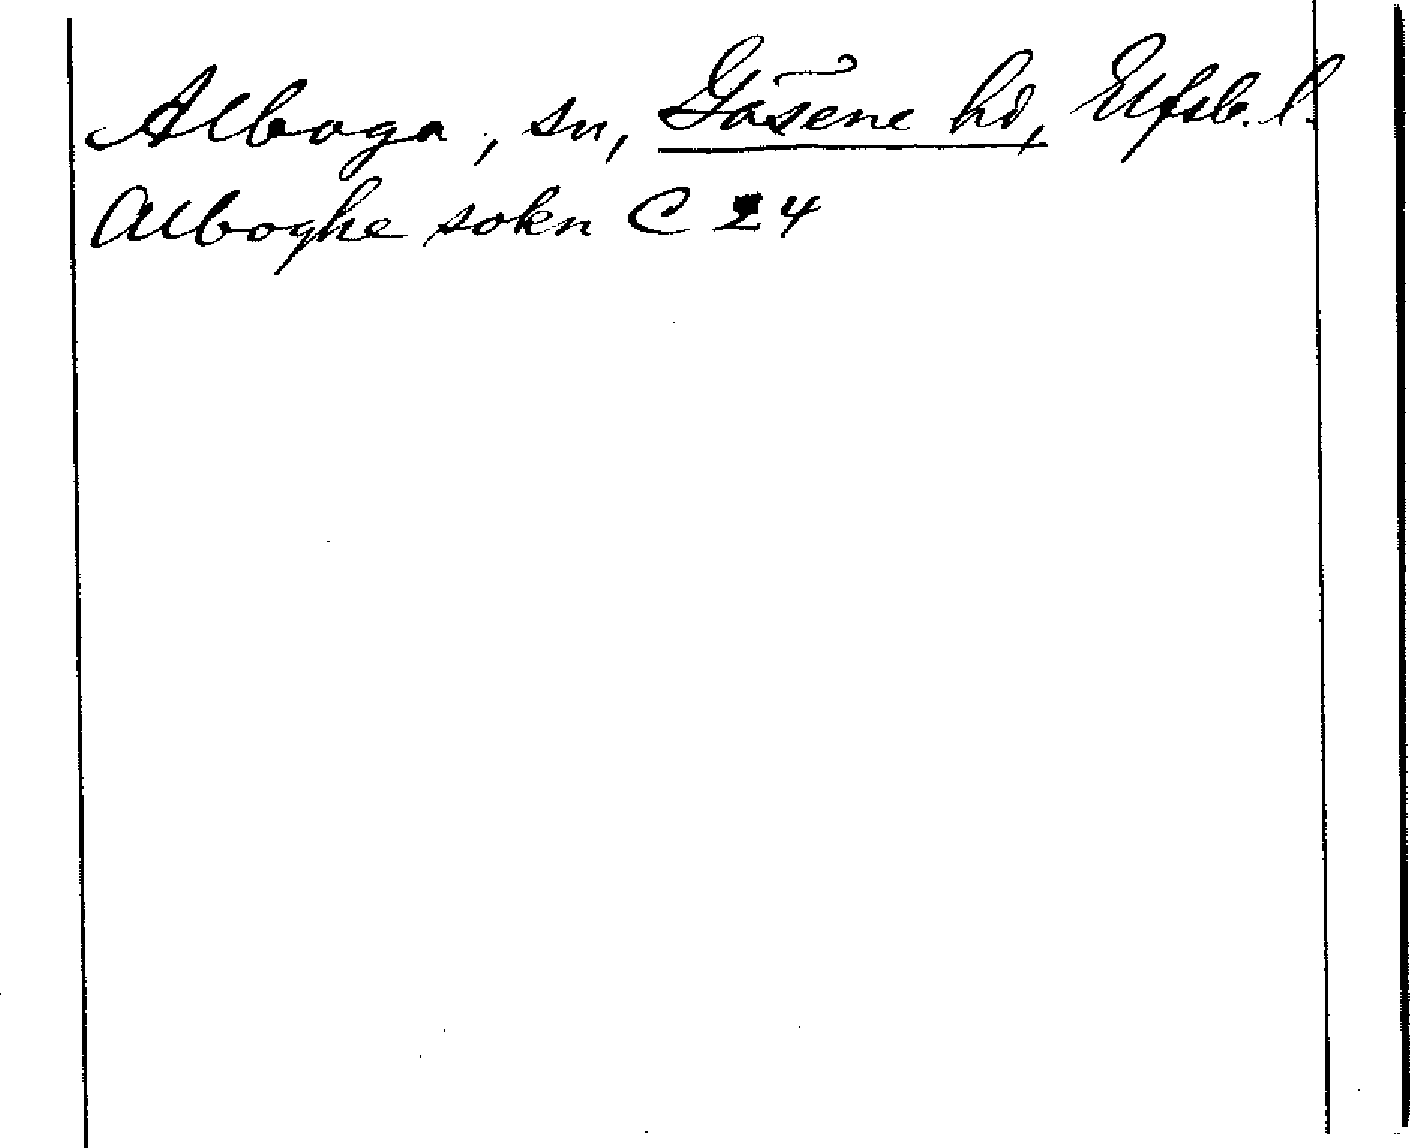 Alboga, sn, Gäsene hd, Elfsb. l.
Alboghe sokn C 24